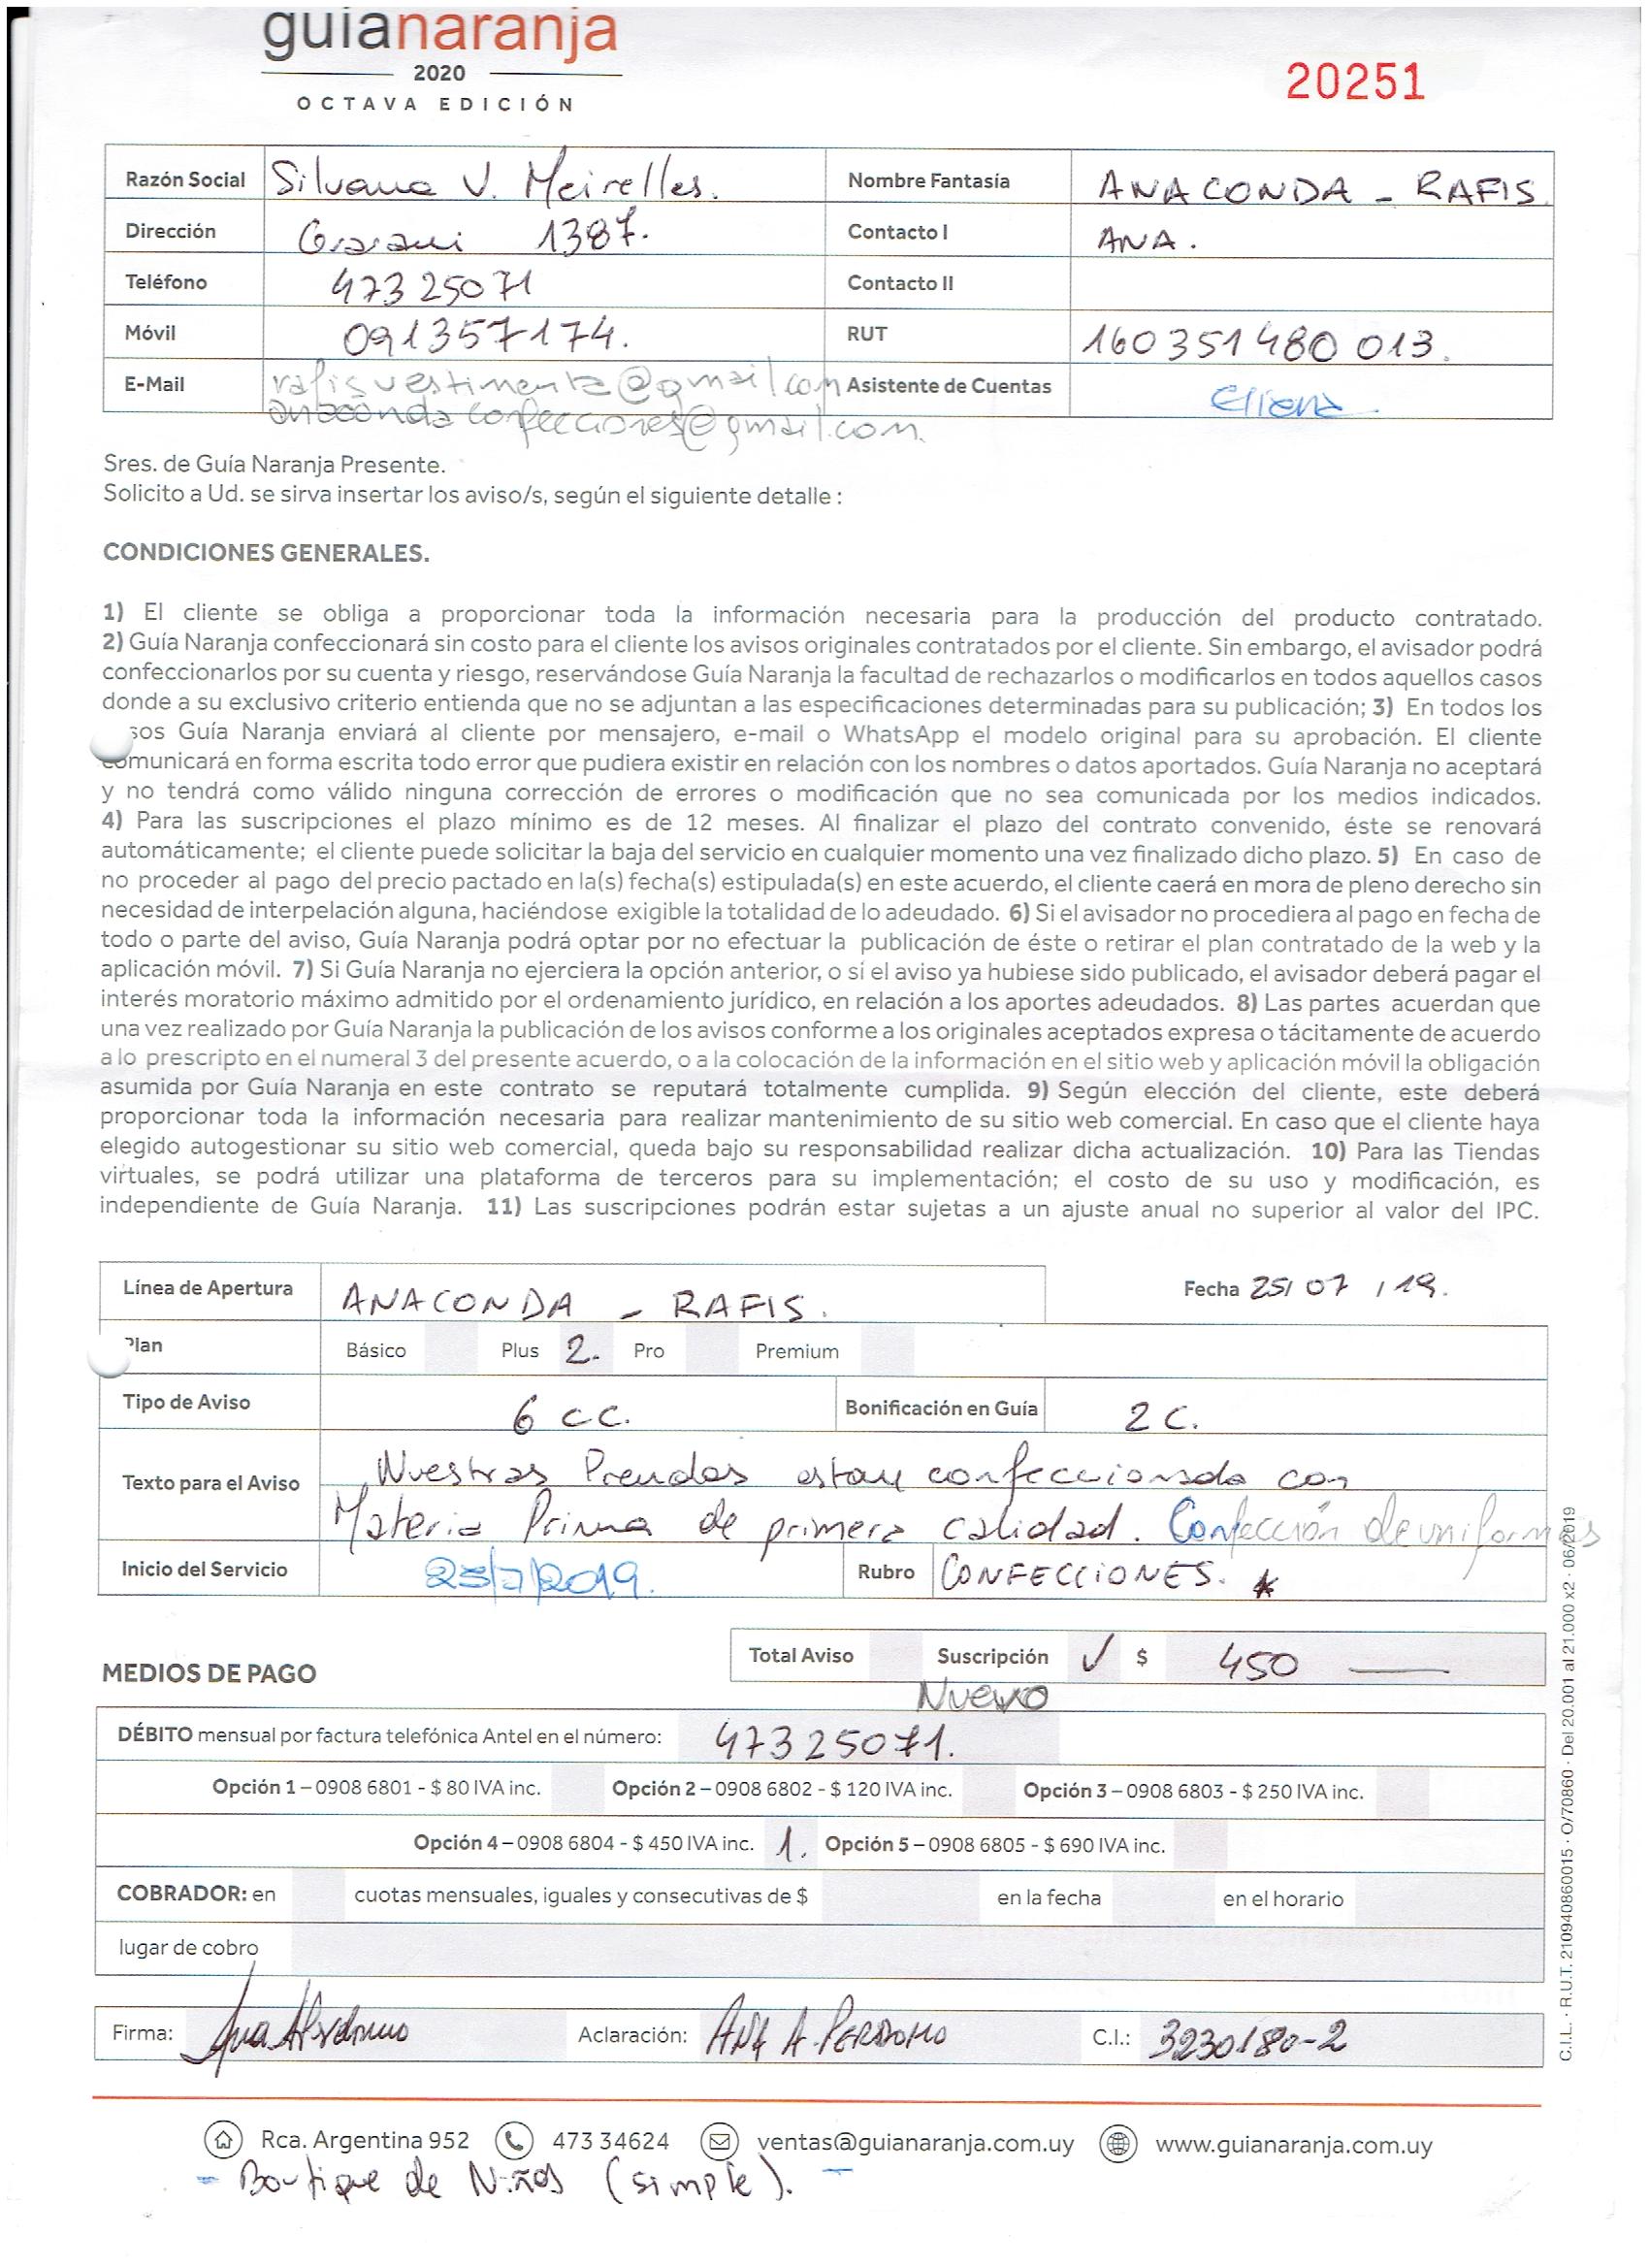 guianaranja
2020
OCTAVA EDICIÓN
20251
Razón Social Silvana V. Meirelles. Nombre Fantasía ANACONDA - RAFIS.
Dirección 1387. Contacto I ANA.
Teléfono 47325071 Contacto II
Móvil 091357174. RUT 160351480013.
E-Mail rafisvestimenta@gmail.com Asistente de Cuentas Eliana
anacondaconfecciones@gmail.com.
Sres. de Guía Naranja Presente.
Solicito a Ud. se sirva insertar los aviso/s, según el siguiente detalle :
CONDICIONES GENERALES.
1) El cliente se obliga a proporcionar toda la información necesaria para la producción del producto contratado.
2) Guía Naranja confeccionará sin costo para el cliente los avisos originales contratados por el cliente. Sin embargo, el avisador podrá
confeccionarlos por su cuenta y riesgo, reservándose Guía Naranja la facultad de rechazarlos o modificarlos en todos aquellos casos
donde a su exclusivo criterio entienda que no se adjuntan a las especificaciones determinadas para su publicación; 3) En todos los
sos Guía Naranja enviará al cliente por mensajero, e-mail o WhatsApp el modelo original para su aprobación. El cliente
comunicará en forma escrita todo error que pudiera existir en relación con los nombres o datos aportados. Guía Naranja no aceptará
y no tendrá como válido ninguna corrección de errores o modificación que no sea comunicada por los medios indicados.
4) Para las suscripciones el plazo mínimo es de 12 meses. Al finalizar el plazo del contrato convenido, éste se renovará
automáticamente; el cliente puede solicitar la baja del servicio en cualquier momento una vez finalizado dicho plazo. 5) En caso de
no proceder al pago del precio pactado en la(s) fecha(s) estipulada(s) en este acuerdo, el cliente caerá en mora de pleno derecho sin
necesidad de interpelación alguna, haciéndose exigible la totalidad de lo adeudado. 6) Si el avisador no procediera al pago en fecha de
todo o parte del aviso, Guía Naranja podrá optar por no efectuar la publicación de éste o retirar el plan contratado de la web y la
aplicación móvil. 7) Si Guía Naranja no ejerciera la opción anterior, o sí el aviso ya hubiese sido publicado, el avisador deberá pagar el
interés moratorio máximo admitido por el ordenamiento jurídico, en relación a los aportes adeudados. 8) Las partes acuerdan que
una vez realizado por Guía Naranja la publicación de los avisos conforme a los originales aceptados expresa o tácitamente de acuerdo
a lo prescripto en el numeral 3 del presente acuerdo, o a la colocación de la información en el sitio web y aplicación móvil la obligación
asumida por Guía Naranja en este contrato se reputará totalmente cumplida. 9) Según elección del cliente, este deberá
proporcionar toda la información necesaria para realizar mantenimiento de su sitio web comercial. En caso que el cliente haya
elegido autogestionar su sitio web comercial, queda bajo su responsabilidad realizar dicha actualización. 10) Para las Tiendas
virtuales, se podrá utilizar una plataforma de terceros para su implementación; el costo de su uso y modificación, es
independiente de Guía Naranja. 11) Las suscripciones podrán estar sujetas a un ajuste anual no superior al valor del IPC.
Línea de Apertura ANACONDA - RAFIS. Fecha 25/ 07 / 19.
Plan Básico Plus 2. Pro Premium
Tipo de Aviso 6 CC. Bonificación en Guía 2 C.
Texto para el Aviso Nuestras Prendas estan confeccionada con
Materia Prima de primera calidad. Confección de uniformes
Inicio del Servicio 25/7/2019. Rubro CONFECCIONES. *
Total Aviso Suscripción ✓ $ 450
MEDIOS DE PAGO
NUEVO
DÉBITO mensual por factura telefónica Antel en el número: 47325071.
Opción 1 – 0908 6801 - $ 80 IVA inc. Opción 2 – 0908 6802 - $ 120 IVA inc. Opción 3 – 0908 6803 - $ 250 IVA inc.
Opción 4 – 0908 6804 - $ 450 IVA inc. 1. Opción 5 – 0908 6805 - $ 690 IVA inc.
COBRADOR: en cuotas mensuales, iguales y consecutivas de $ en la fecha en el horario
lugar de cobro
Firma: Aclaración: ANA A. PERDOMO C.I.: 3230180-2
C.I.L. · R.U.T. 210940860015 · O/70860 · Del 20.001 al 21.000 x2 · 06/2019
Rca. Argentina 952 473 34624 ventas@guianaranja.com.uy www.guianaranja.com.uy
- Boutique de Niños (simple). -